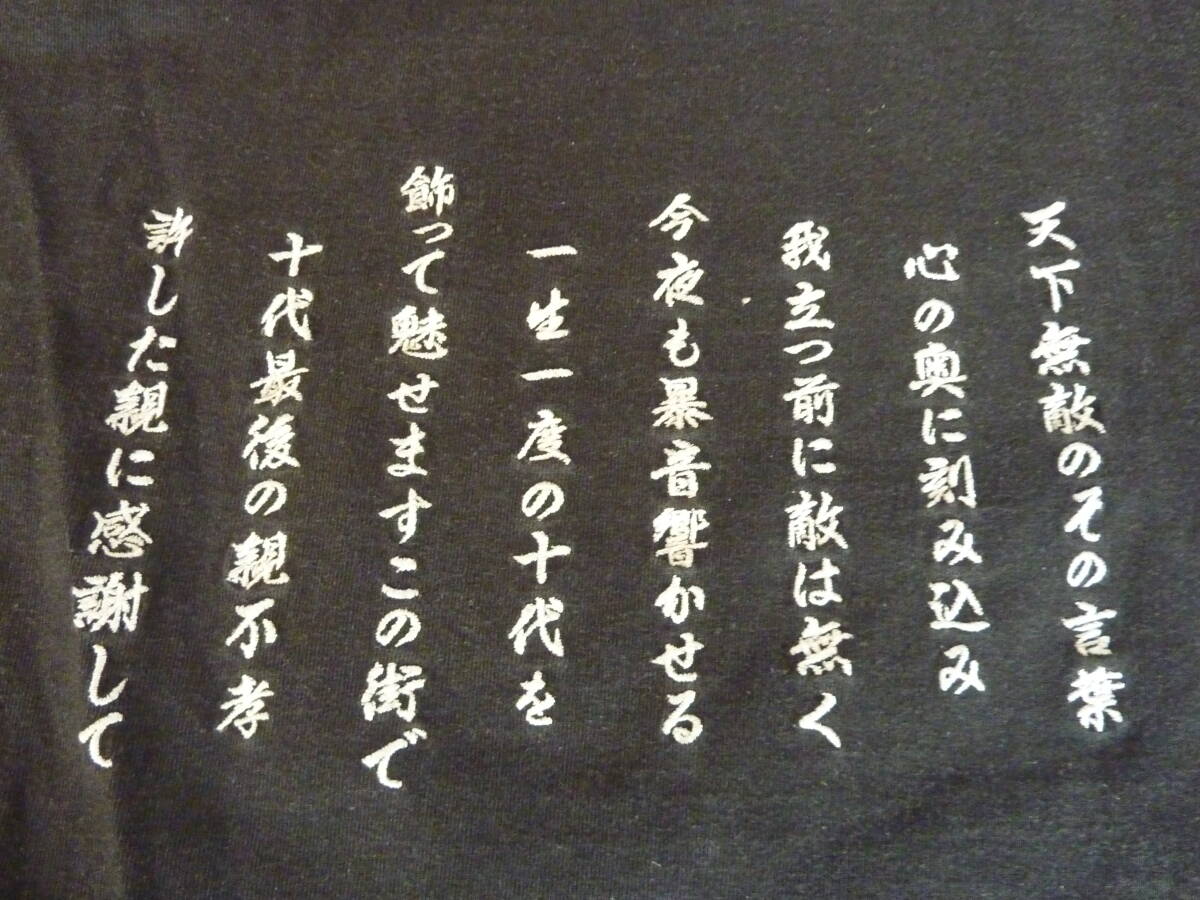 天下無敵のその言葉
心の奥に刻み込み
我立つ前に敵は無く
今夜も暴音響かせる
一生一度の十代を
飾って魅せますこの街で
十代最後の親不孝
許した親に感謝して